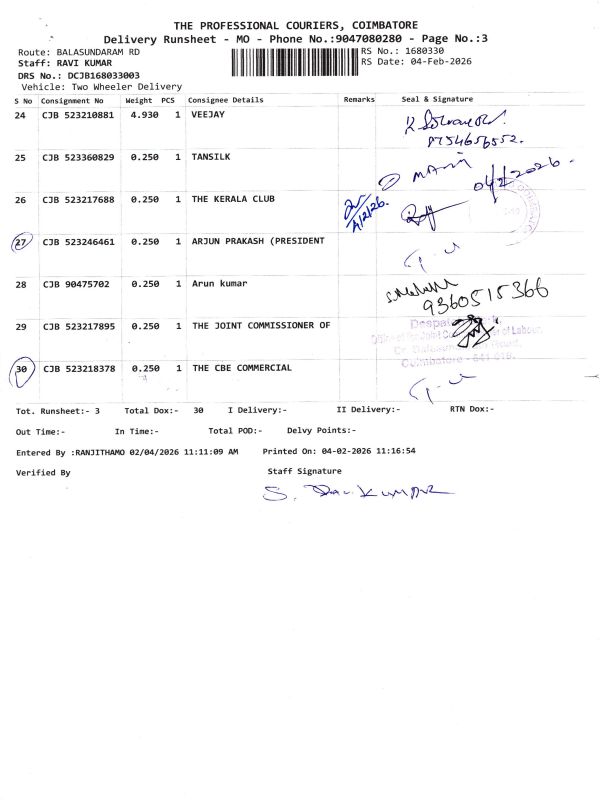 THE PROFESSIONAL COURIERS, COIMBATORE
Delivery Runsheet - MO - Phone No.:9047080280 - Page No.:3
Route: BALASUNDARAM RD RS No.: 1680330
Staff: RAVI KUMAR RS Date: 04-Feb-2026
DRS No.: DCJB168033003
Vehicle: Two Wheeler Delivery
S No Consignment No Weight PCS Consignee Details Remarks Seal & Signature
24 CJB 523210881 4.930 1 VEEJAY
25 CJB 523360829 0.250 1 TANSILK
MANI 04/2/2026
26 CJB 523217688 0.250 1 THE KERALA CLUB
4/2/26.
27 CJB 523246461 0.250 1 ARJUN PRAKASH (PRESIDENT
28 CJB 90475702 0.250 1 Arun kumar
9360515366
29 CJB 523217895 0.250 1 THE JOINT COMMISSIONER OF
of Labour,
Coimbatore - 641 018.
30 CJB 523218378 0.250 1 THE CBE COMMERCIAL
Tot. Runsheet:- 3 Total Dox:- 30 I Delivery:- II Delivery:- RTN Dox:-
Out Time:- In Time:- Total POD:- Delvy Points:-
Entered By :RANJITHAMO 02/04/2026 11:11:09 AM Printed On: 04-02-2026 11:16:54
Verified By Staff Signature
S. Ravi Kumar